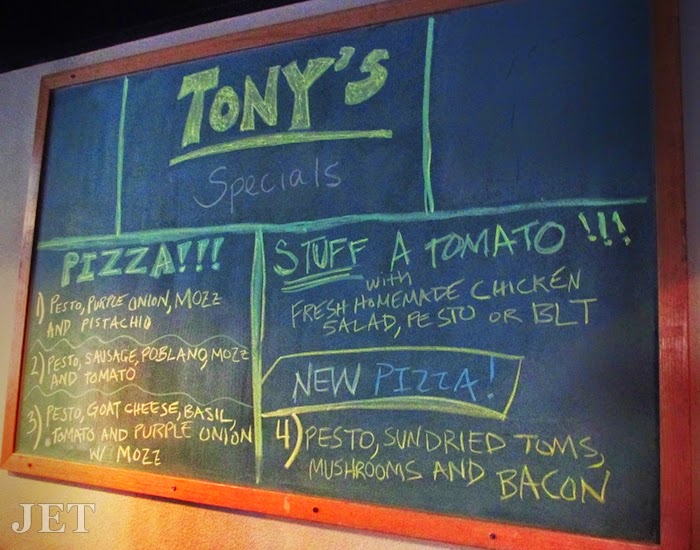 TONY'S
Specials
PIZZA!!!
1) PESTO, PURPLE ONION, MOZZ
AND PISTACHIO
2) PESTO, SAUSAGE, POBLANO, MOZZ
AND TOMATO
3) PESTO, GOAT CHEESE, BASIL,
TOMATO AND PURPLE ONION
W/ MOZZ
STUFF A TOMATO!!!
with
FRESH HOMEMADE CHICKEN
SALAD, PESTO OR BLT
NEW PIZZA!
4) PESTO, SUNDRIED TOMS,
MUSHROOMS AND BACON
JET